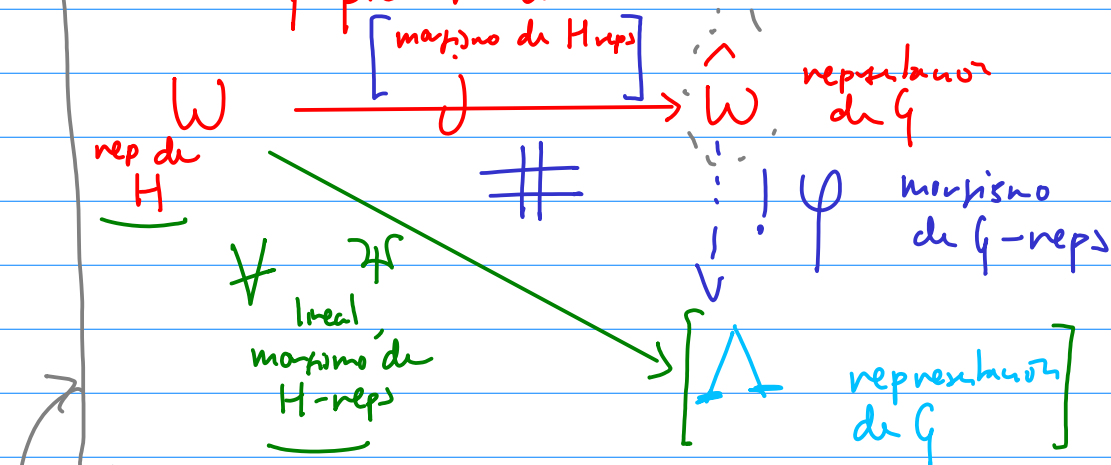 [morfismo de H reps]
W
j
Ŵ
representación
de G
rep de
H
#
! φ
morfismo
de G-reps
∀
lineal
morfismo de
H-reps
[A
representación
de G]